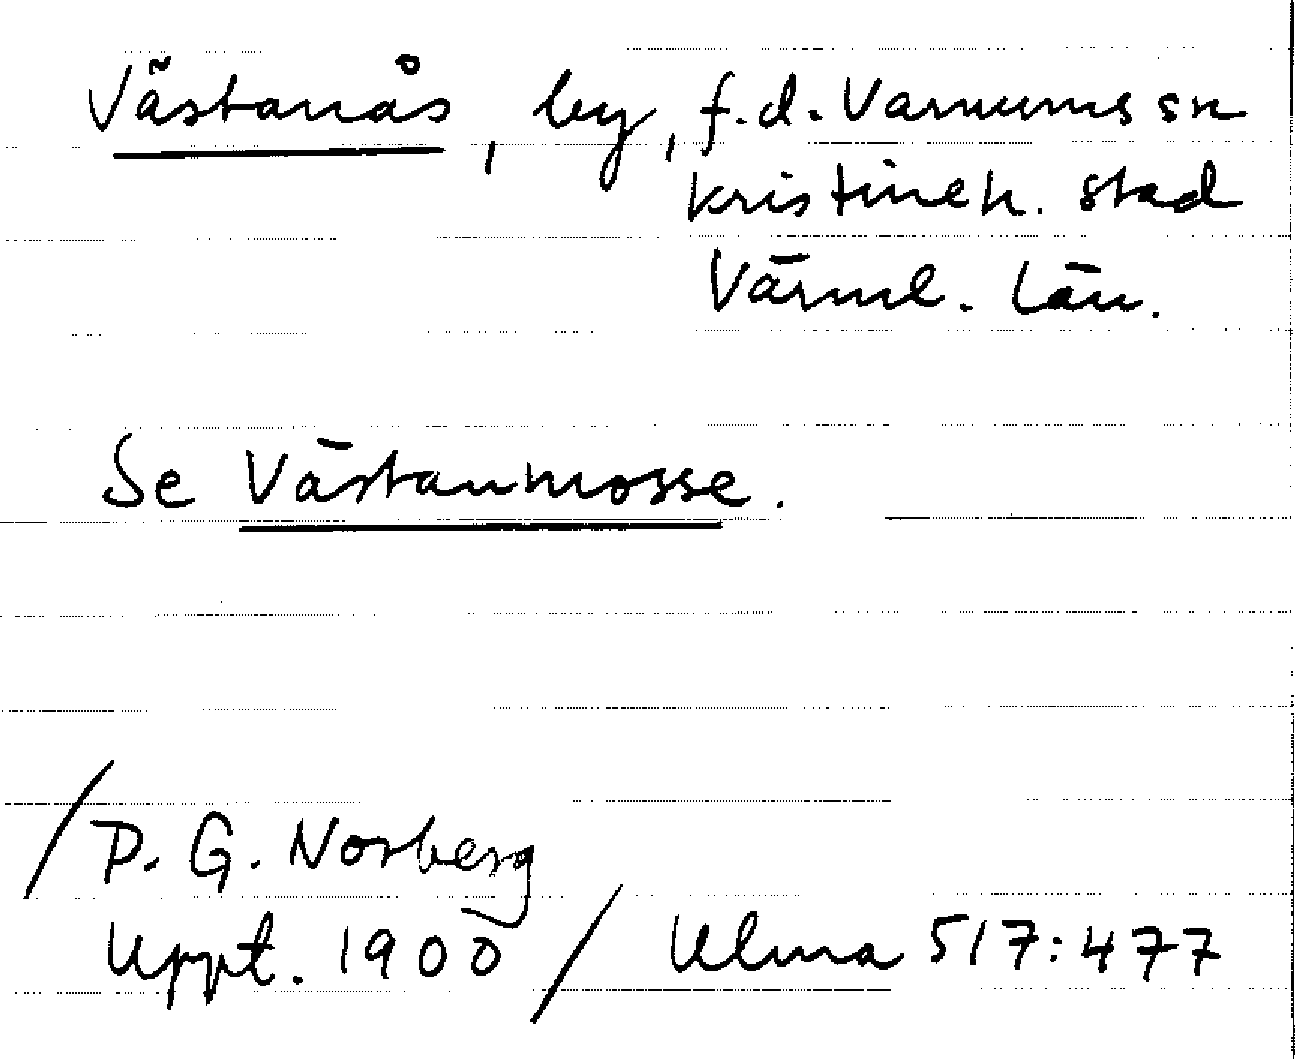 Västanås, by, f.d. Varnums sn
Kristineh. stad
Värml. län.
Se Västanmosse.
/P. G. Norberg
Uppt. 1900/ Ulma 517:477